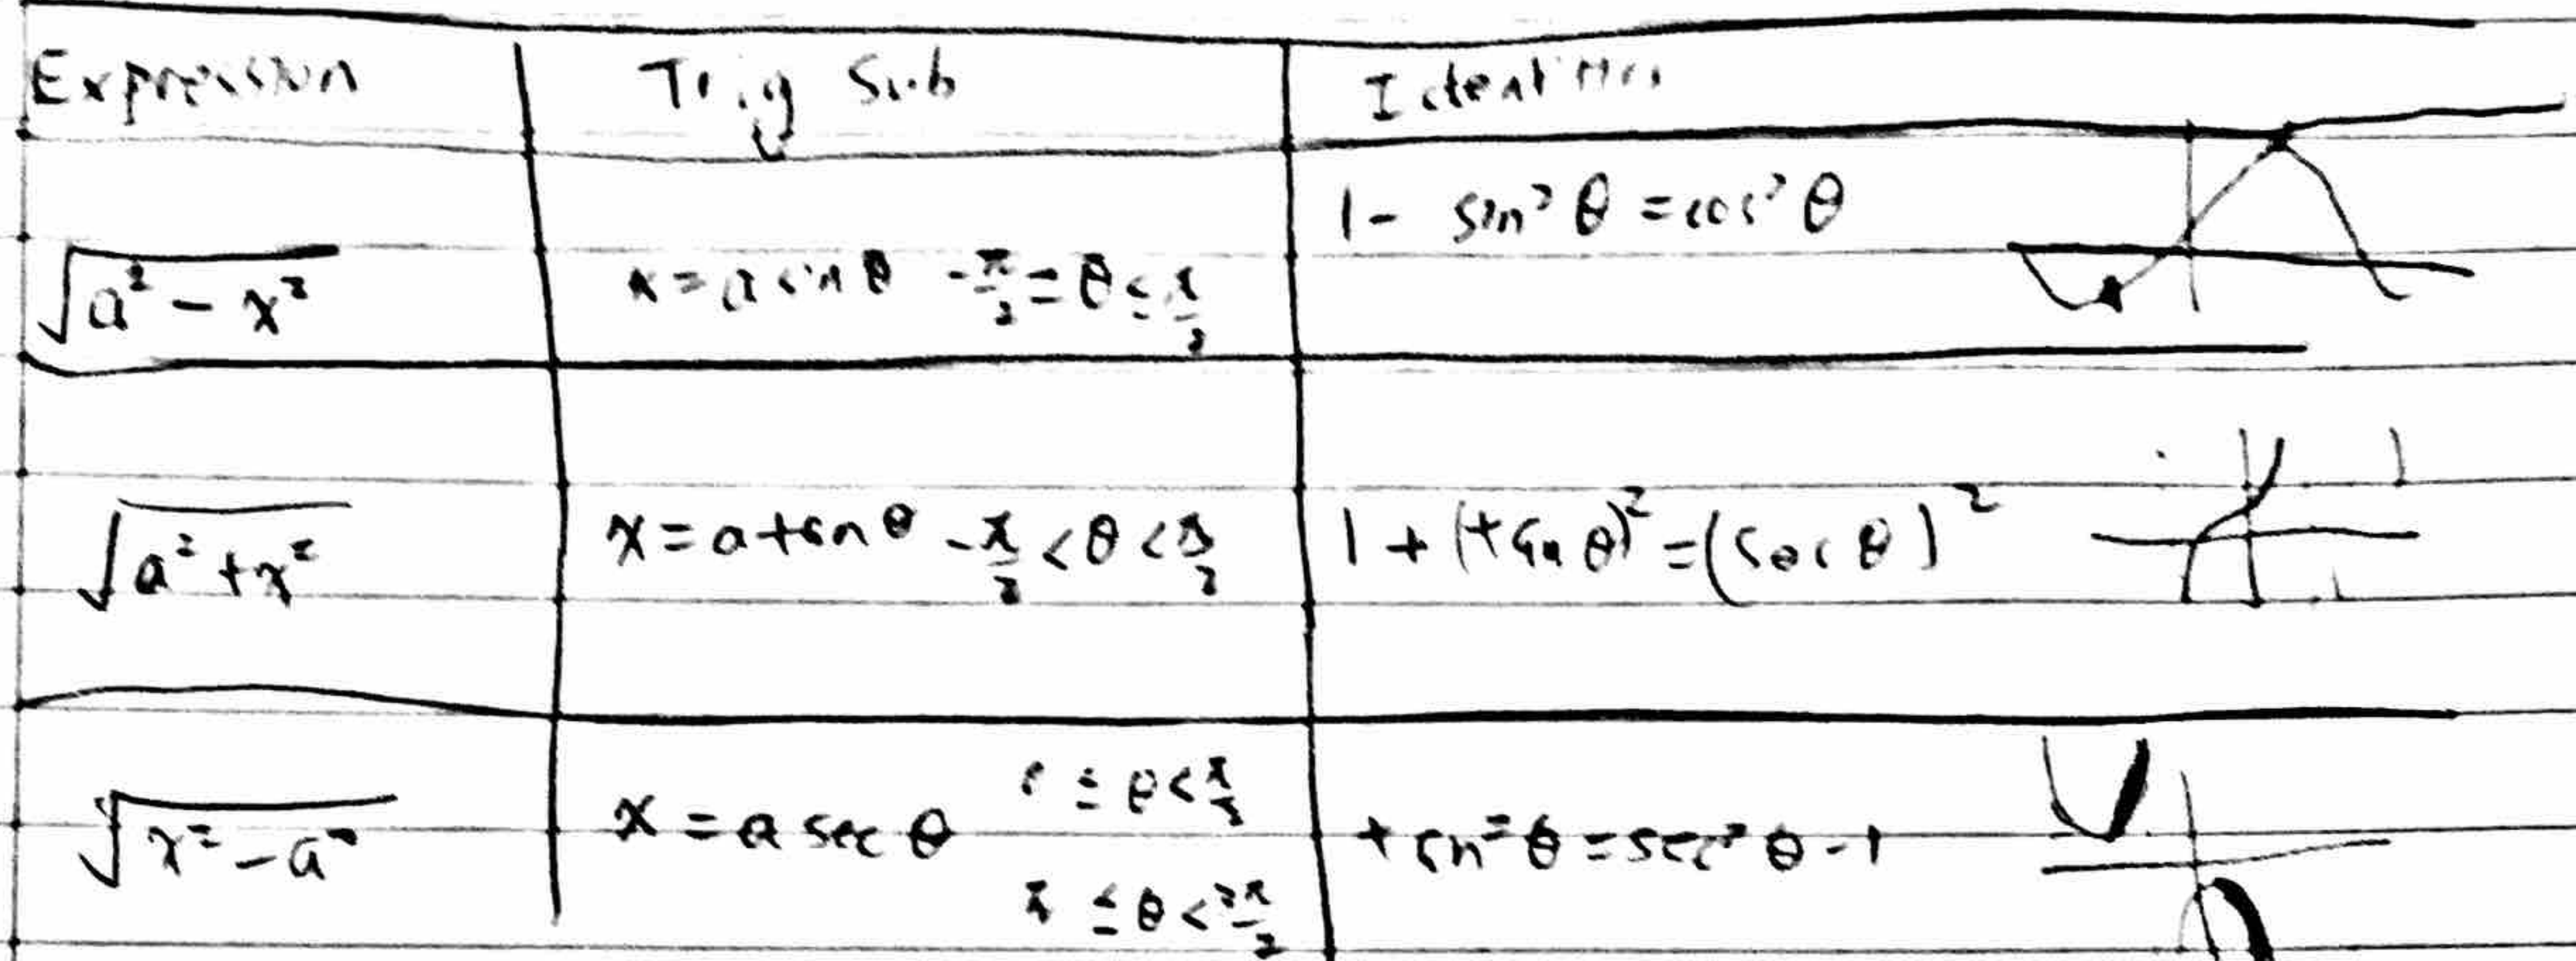 Expression Trig Sub Identities
√(a² − x²) x = a sin θ −π/2 ≤ θ ≤ π/2 1 − sin² θ = cos² θ
√(a² + x²) x = a tan θ −π/2 < θ < π/2 1 + (tan θ)² = (sec θ)²
√(x² − a²) x = a sec θ 0 ≤ θ < π/2 tan² θ = sec² θ − 1
π ≤ θ < 3π/2